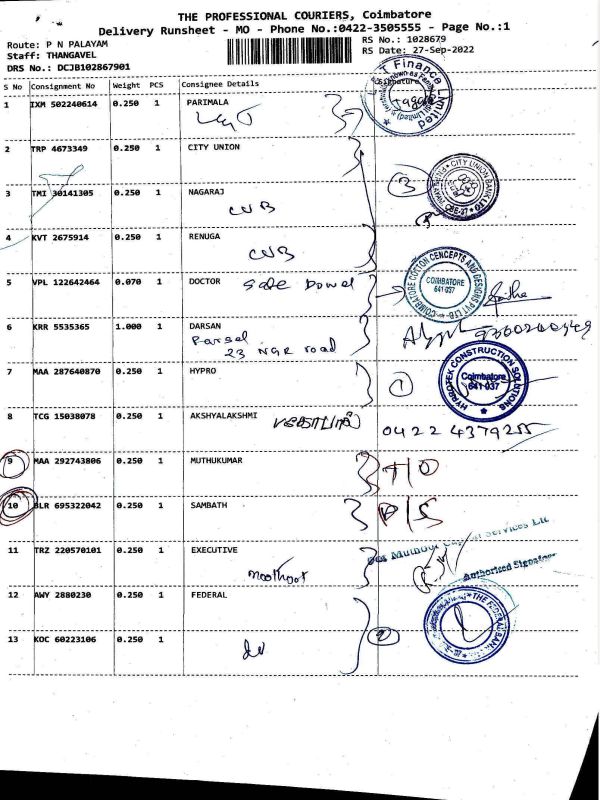 THE PROFESSIONAL COURIERS, Coimbatore
Delivery Runsheet - MO - Phone No.:0422-3505555 - Page No.:1
Route: P N PALAYAM
RS No.: 1028679
Staff: THANGAVEL
RS Date: 27-Sep-2022
DRS No.: DCJB102867901
S No Consignment No Weight PCS Consignee Details Signature
1 IXM 502240614 0.250 1 PARIMALA
Finance Limited
2 TRP 4673349 0.250 1 CITY UNION
3 CITY UNION BANK LTD
3 TMI 30141305 0.250 1 NAGARAJ
CUB
4 KVT 2675914 0.250 1 RENUGA
CUB
5 VPL 122642464 0.070 1 DOCTOR
COIMBATORE COTTON CENCEPTS AND DESIGNS PVT LTD
COIMBATORE
641 037
6 KRR 5535365 1.000 1 DARSAN
Parsal
23 NGR road
7 MAA 287640870 0.250 1 HYPRO
1
HYPROTEK CONSTRUCTION SOLUTIONS
Coimbatore
641 037
8 TCG 15038078 0.250 1 AKSHYALAKSHMI
0422 4379255
9 MAA 292743806 0.250 1 MUTHUKUMAR
T/O
10 BLR 695322042 0.250 1 SAMBATH
P/S
11 TRZ 220570101 0.250 1 EXECUTIVE
moothoot
For Muthoot Capital Services Ltd
Authorised Signatory
12 AWY 2880230 0.250 1 FEDERAL
THE FEDERAL BANK
13 KOC 60223106 0.250 1
2